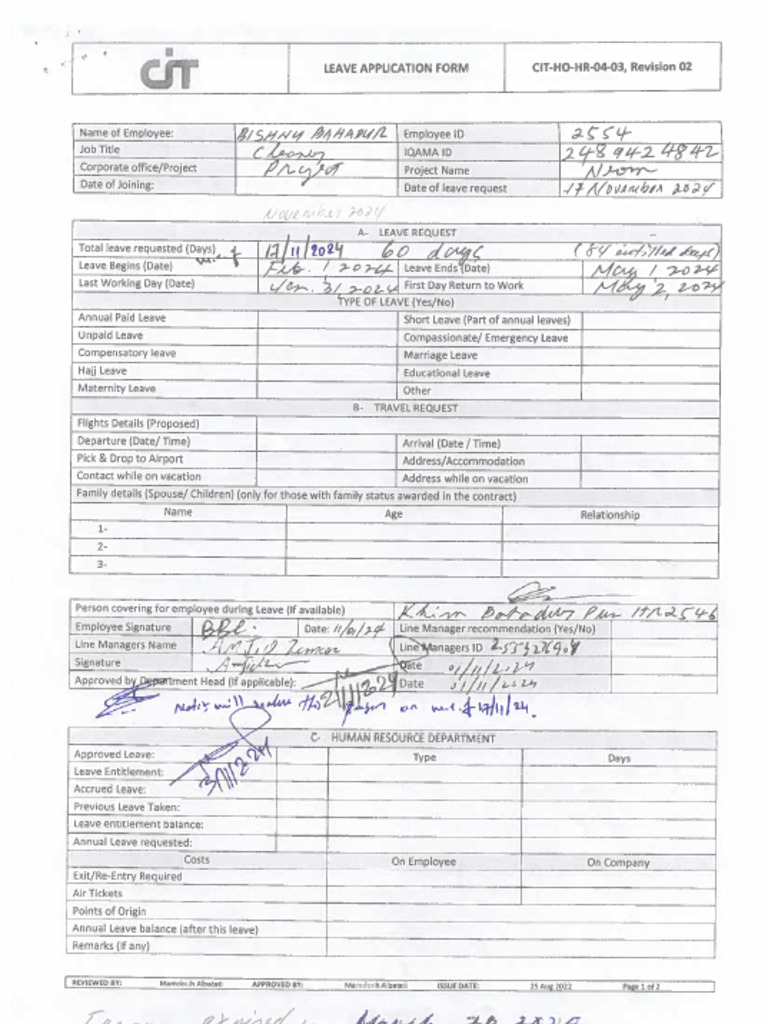 CIT
LEAVE APPLICATION FORM
CIT-HO-HR-04-03, Revision 02
Name of Employee: BISHNU BAHADUR Employee ID 2554
Job Title Cleaner IQAMA ID 2489424842
Corporate office/Project Project Project Name Neom
Date of Joining: Date of leave request 17 November 2024
November 2024
A- LEAVE REQUEST
Total leave requested (Days) w.e.f 17/11/2024 60 days (84 days)
Leave Begins (Date) Feb. 1 2024 Leave Ends (Date) May 1 2024
Last Working Day (Date) Jan. 31, 2024 First Day Return to Work May 2, 2024
TYPE OF LEAVE (Yes/No)
Annual Paid Leave Short Leave (Part of annual leaves)
Unpaid Leave Compassionate/ Emergency Leave
Compensatory leave Marriage Leave
Hajj Leave Educational Leave
Maternity Leave Other
B- TRAVEL REQUEST
Flights Details (Proposed)
Departure (Date/ Time) Arrival (Date / Time)
Pick & Drop to Airport Address/Accommodation
Contact while on vacation Address while on vacation
Family details (Spouse/ Children) (only for those with family status awarded in the contract)
Name Age Relationship
1-
2-
3-
Person covering for employee during Leave (If available) Khim Bahadur Pun HR2546
Employee Signature Date: 11/01/24 Line Manager recommendation (Yes/No)
Line Managers Name Line Managers ID
Signature Date 01/11/2024
Approved by Department Head (If applicable): 2/11/2024 Date 01/11/2024
will this person on w.e.f 17/11/24.
C- HUMAN RESOURCE DEPARTMENT
Approved Leave: Type Days
3/11/24
Leave Entitlement:
Accrued Leave:
Previous Leave Taken:
Leave entitlement balance:
Annual Leave requested:
Costs On Employee On Company
Exit/Re-Entry Required
Air Tickets
Points of Origin
Annual Leave balance (after this leave)
Remarks (If any)
REVIEWED BY: Mamdouh Albatati APPROVED BY: Mamdouh Albatati ISSUE DATE: 25 Aug 2022 Page 1 of 2
expired March 20 2024